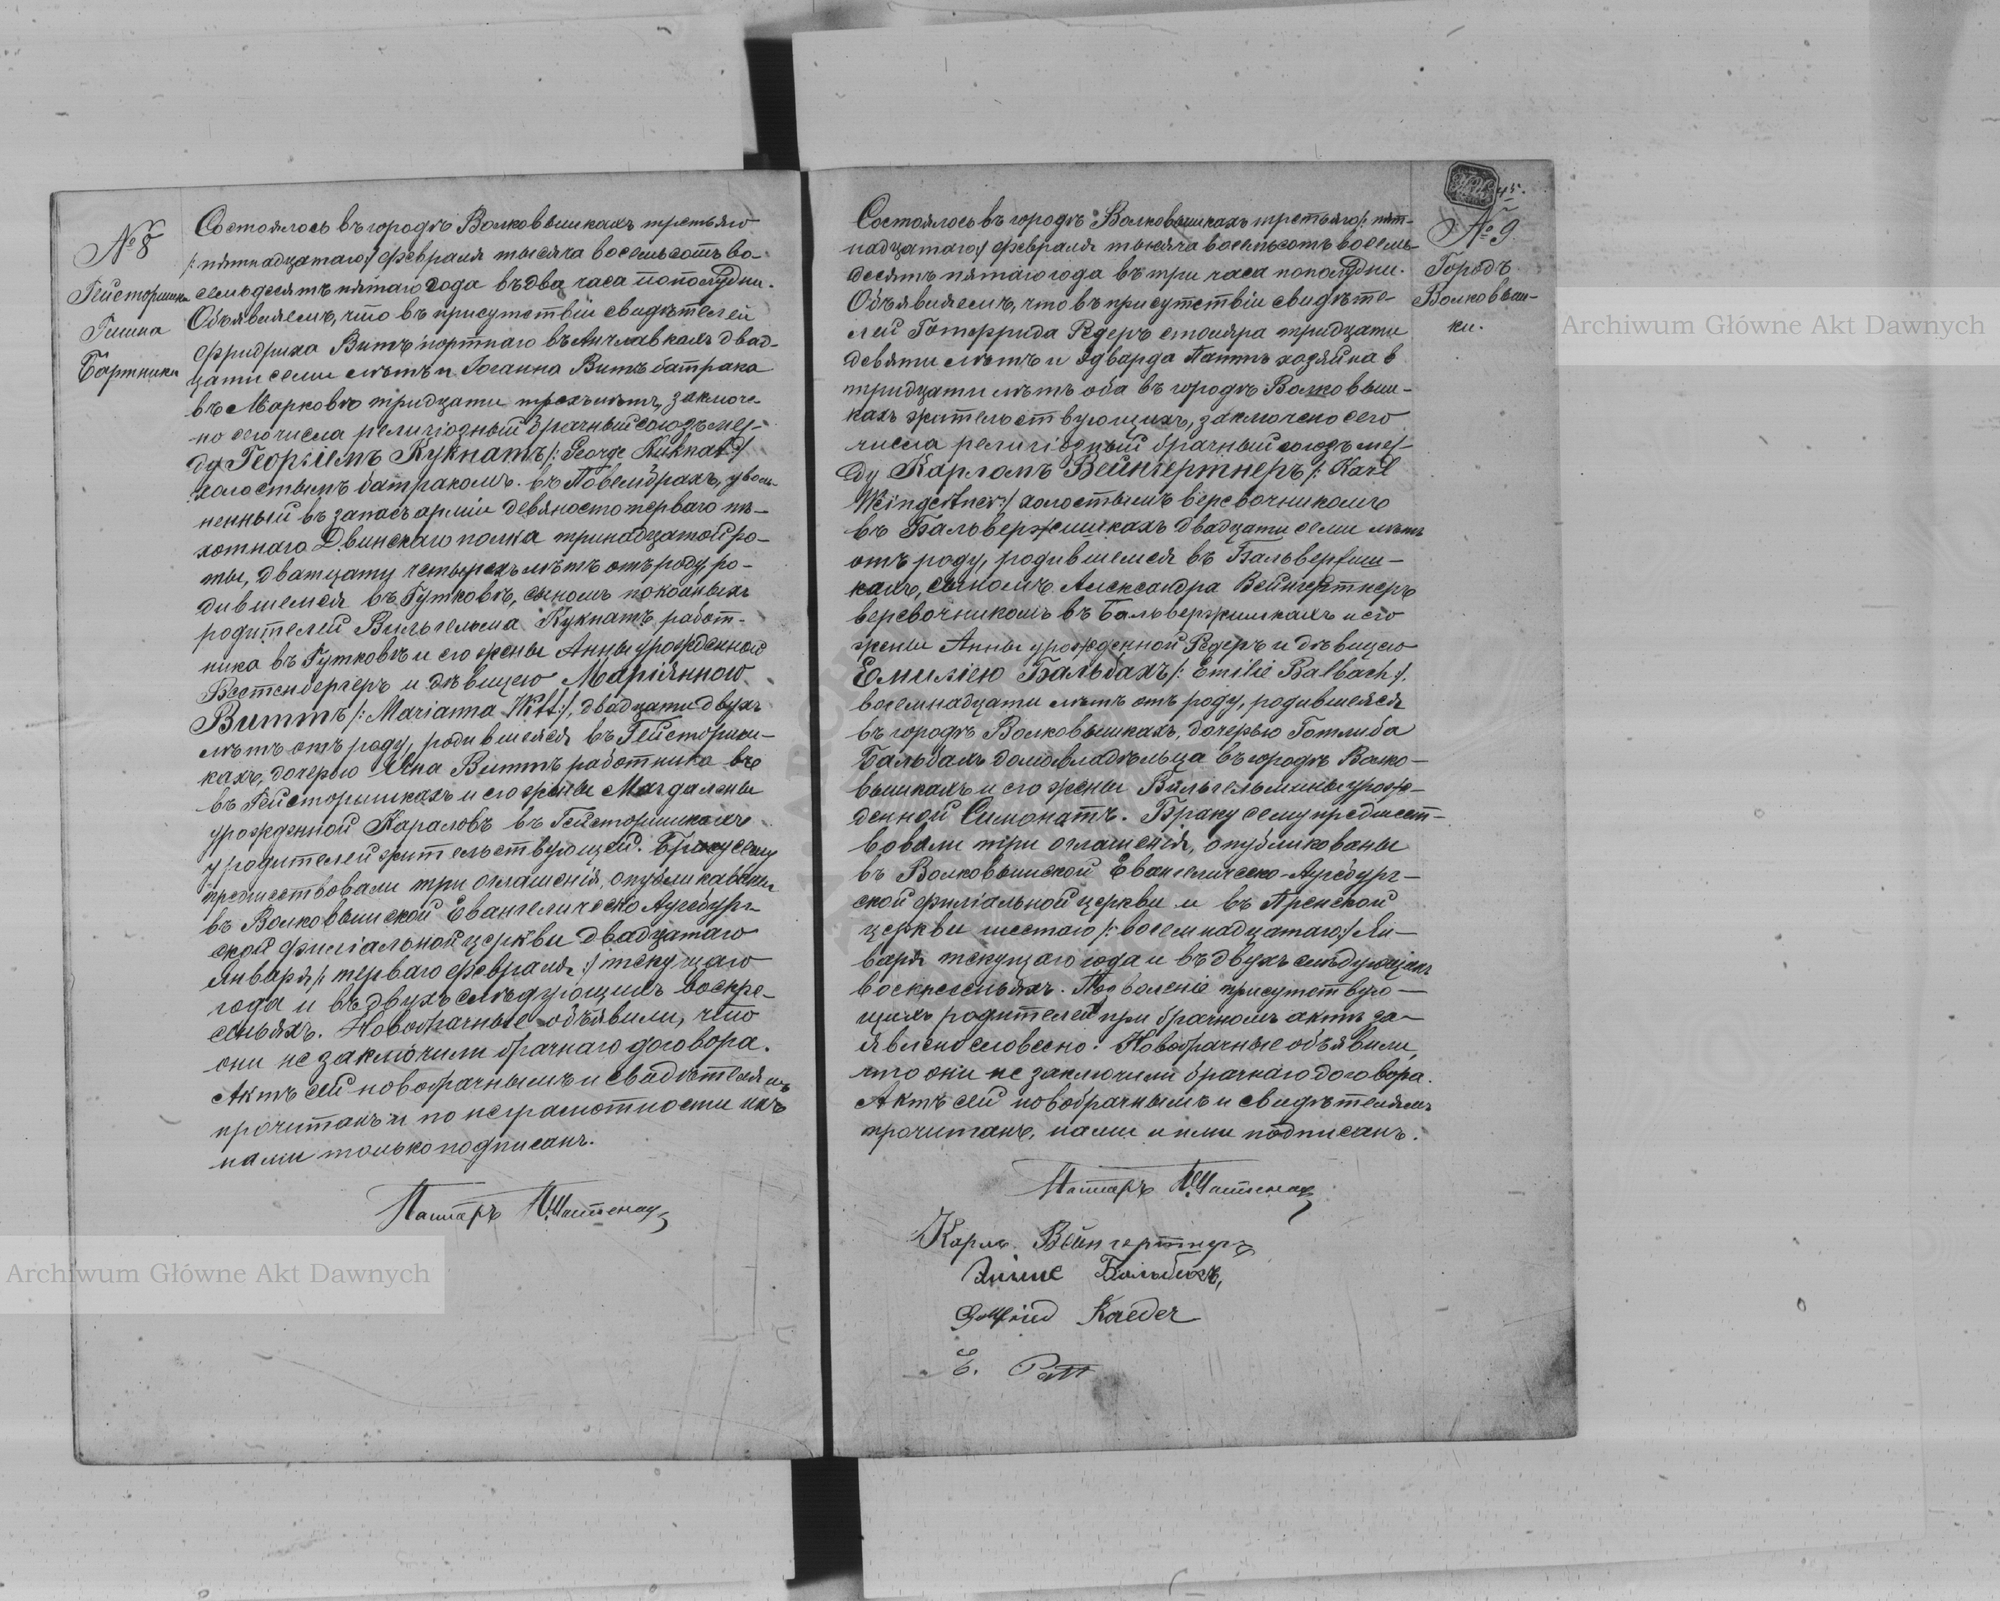 № 8
Гейсторишки
Гмина
Бартники
Состоялось въ городѣ Волковышкахъ третьяго
/: пятнадцатаго :/ февраля тысяча восемьсотъ во-
семьдесятъ пятаго года въ два часа пополудни.
Объявляемъ, что въ присутствіи свидѣтелей
Фридриха Витъ портнаго въ двад-
цати семи лѣтъ и Іоганна Витъ батрака
въ Марковѣ тридцати трехъ лѣтъ, заключе-
но сего числа религіозный брачный союзъ меж-
ду Георгіемъ Кукнатъ /: George Kuknat :/
холостымъ батракомъ въ уволь-
ненный въ запасъ арміи девяносто перваго пѣ-
хотнаго Двинскаго полка тринадцатой ро-
ты, дватцати четырехъ лѣтъ отъ роду ро-
дившемся въ Гутковѣ, сыномъ покойныхъ
родителей Вильгельма Кукнатъ, работ-
ника въ Гутковѣ и его жены Анны урожденной
Вестенбергеръ и дѣвицею Маріянною
Виттъ /: Marianna Witt :/, двадцати двухъ
лѣтъ отъ роду, родившейся въ Гейсториш-
кахъ, дочерью Яна Виттъ работника въ
въ Гейсторышкахъ и его жены Магдалены
урожденной Караловъ въ Гейсторишкахъ
у родителей жительствующей. Браку сему
предшествовали три оглашенія, опубликованы
въ Волковышской Евангелическо Аугсбург-
ской филіальной церкви двадцатаго
Января /: перваго февраля :/ текущаго
года и въ двухъ слѣдующихъ воскре-
сеньяхъ. Новобрачные объявили, что
они не заключили брачнаго договора.
Актъ сей новобрачнымъ и свидѣтелямъ
прочитанъ и по неграмотности ихъ
нами только подписанъ.
Пасторъ
45.
№ 9
Городъ
Волковыш-
ки.
Состоялось въ городѣ Волковышкахъ третьяго /: пят-
надцатаго :/ февраля тысяча восемьсотъ восемь-
десятъ пятаго года въ три часа пополудни.
Объявляемъ, что въ присутствіи свидѣте-
лей Готфрида Редеръ столяра тридцати
девяти лѣтъ и Эдварда Паттъ хозяйна в
тридцати лѣтъ оба въ городѣ Волковыш-
кахъ жительствующихъ, заключено сего
числа религіозный брачный союзъ меж-
ду Карломъ Вейнгертнеръ /: Karl
Weingertner :/ холостымъ веревочникомъ
въ Бальвержишкахъ двадцати семи лѣтъ
отъ роду, родившемся въ Бальвержиш-
кахъ, сыномъ Александра Вейнгертнеръ
веревочникомъ въ Бальвержишкахъ и его
жены Анны урожденной Редеръ и дѣвицею
Емиліею Бальбахъ /: Emilie Balbach :/
восемнадцати лѣтъ отъ роду, родившейся
въ городѣ Волковышкахъ, дочерью Готлиба
Бальбахъ домовладѣльца въ городѣ Волко-
вышкахъ и его жены Вильгельмины урож-
денной Симонатъ. Браку сему предшест-
вовали три оглашенія, опубликованы
въ Волковышской Евангелическо-Аугсбург-
ской филіальной церкви и въ Пренской
церкви шестаго /: восемнадцатаго :/ Ян-
варя текущаго года и въ двухъ слѣдующихъ
воскресеньяхъ. Позволеніе присутствую-
щихъ родителей при брачномъ актѣ за-
явлено словесно. Новобрачные объявили,
что они не заключили брачнаго договора.
Актъ сей новобрачнымъ и свидѣтелямъ
прочитанъ, нами и ими подписанъ.
Пасторъ
Карлъ Вейнгертнеръ
Бальбахъ,
Gottfried Raeder
E. Patt
Archiwum Główne Akt Dawnych
Archiwum Główne Akt Dawnych